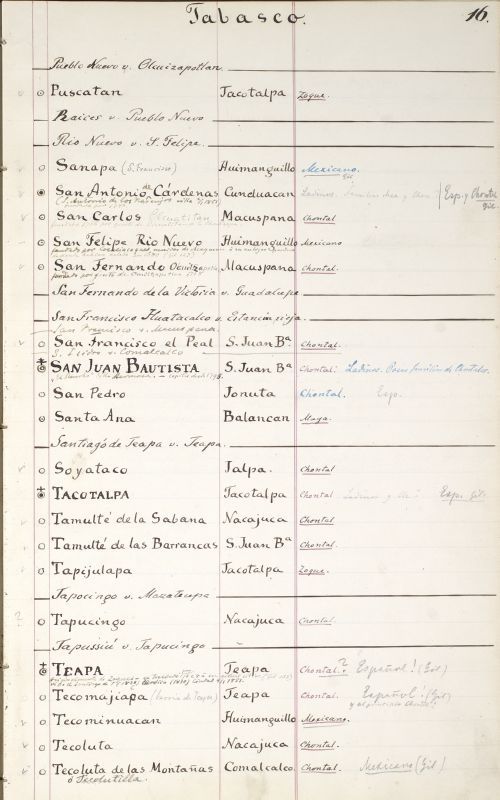 Tabasco.
16.
Pueblo Nuevo v. Olcuizapotlan.
Puscatan Tacotalpa Zoque.
Raices v. Pueblo Nuevo
Rio Nuevo v. S. Felipe.
Sanapa (S. Francisco) Huimanguillo Mexicano.
Gil
San Antonio de Cárdenas Cunduacan Ladinos. Esp. y Chontal
Gil
San Carlos Olcuatitan Macuspana Chontal
San Felipe Rio Nuevo Huimanguillo Mexicano
San Fernando Ocuiltzapotlan Macuspana Chontal.
San Fernando de la Victoria v. Guadalupe
San Francisco Tluatacalco v. Estancia vieja.
San Francisco v. Macuspana.
San Francisco el Peal S. Juan Bª Chontal.
S. Isidro v. Comalcalco
San Juan Bautista S. Juan Bª Chontal. Ladinos. Pocas familias de Chontales.
San Pedro Jonuta Chontal. Esp.
Santa Ana Balancan Maya.
Santiago de Teapa v. Teapa.
Soyataco Jalpa. Chontal
Tacotalpa Tacotalpa Chontal Ladinos y Esp. Gil.
Tamulté de la Sabana Nacajuca Chontal
Tamulté de las Barrancas S. Juan Bª Chontal.
Tapijulapa Tacotalpa Zoque.
Tapocingo v. Mazateupa
? Tapucingo Nacajuca Chontal
Tapussiú v. Tapucingo
Teapa Teapa Chontal.? Español! (Gil)
Tecomajiapa Teapa Chontal. Español! (Gil)
Tecominuacan Huimanguillo Mexicano.
Tecoluta Nacajuca Chontal.
Tecoluta de las Montañas Comalcalco Chontal. Mexicano (Gil)
ó Tecolutilla.